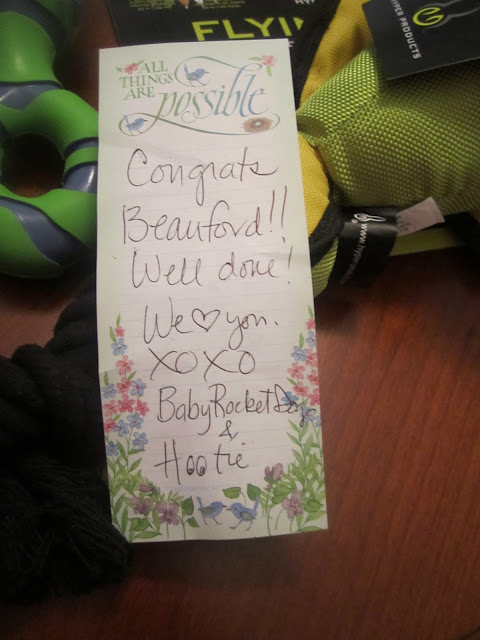 FLYI
HYPER PRODUCTS
ALL
THINGS
ARE possible
Congrats
Beauford!!
Well done!
We ♡ you.
XOXO
BabyRocketDog
&
Hootie